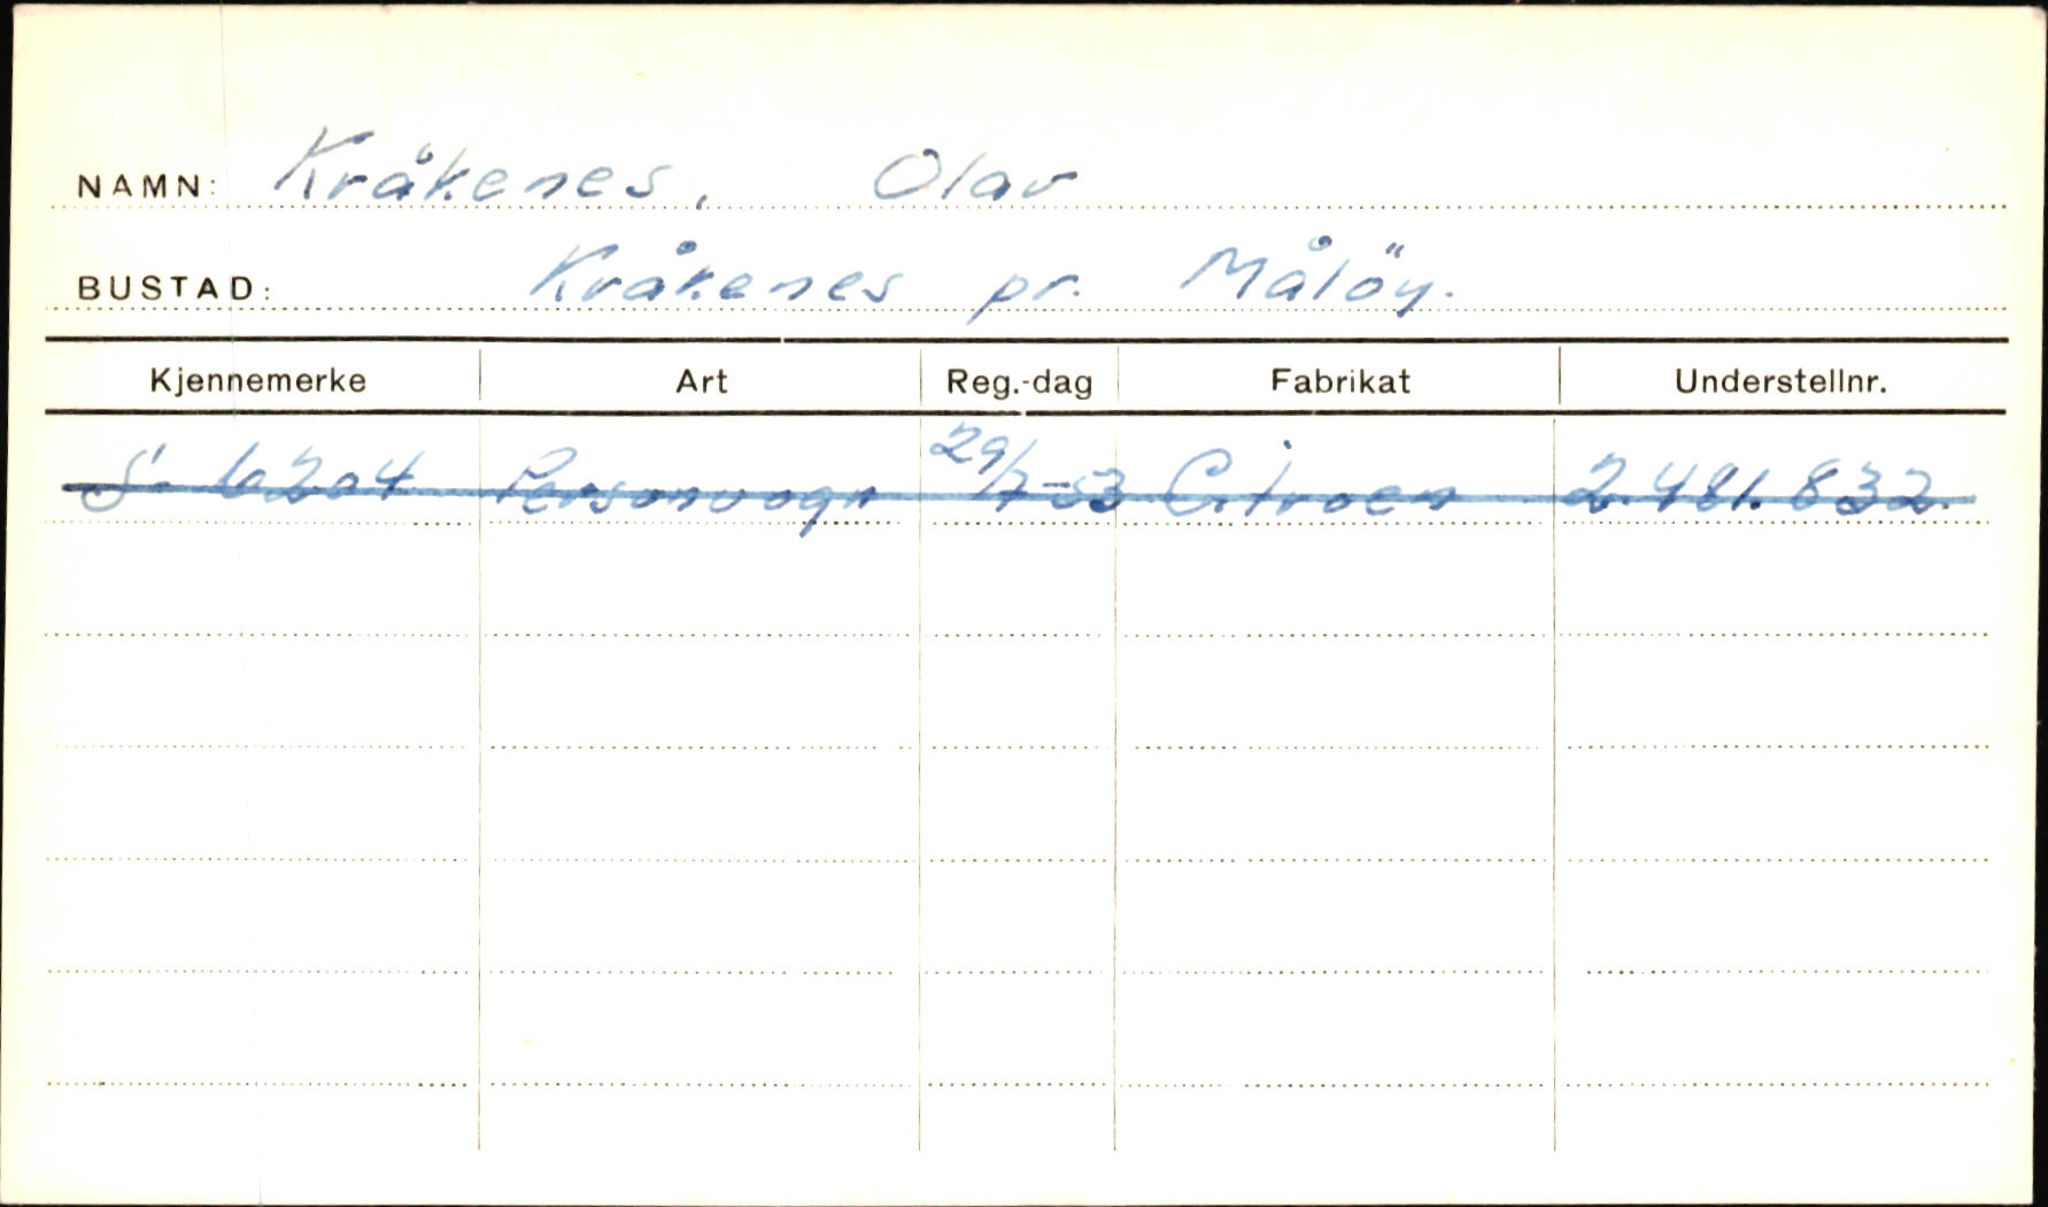 NAMN: Kråkenes, Olav
BUSTAD: Kråkenes pr. Målöy.
Kjennemerke Art Reg.-dag Fabrikat Understellnr.
S-6204 Personvogn 29/7-53 Citroen 2.481.832.